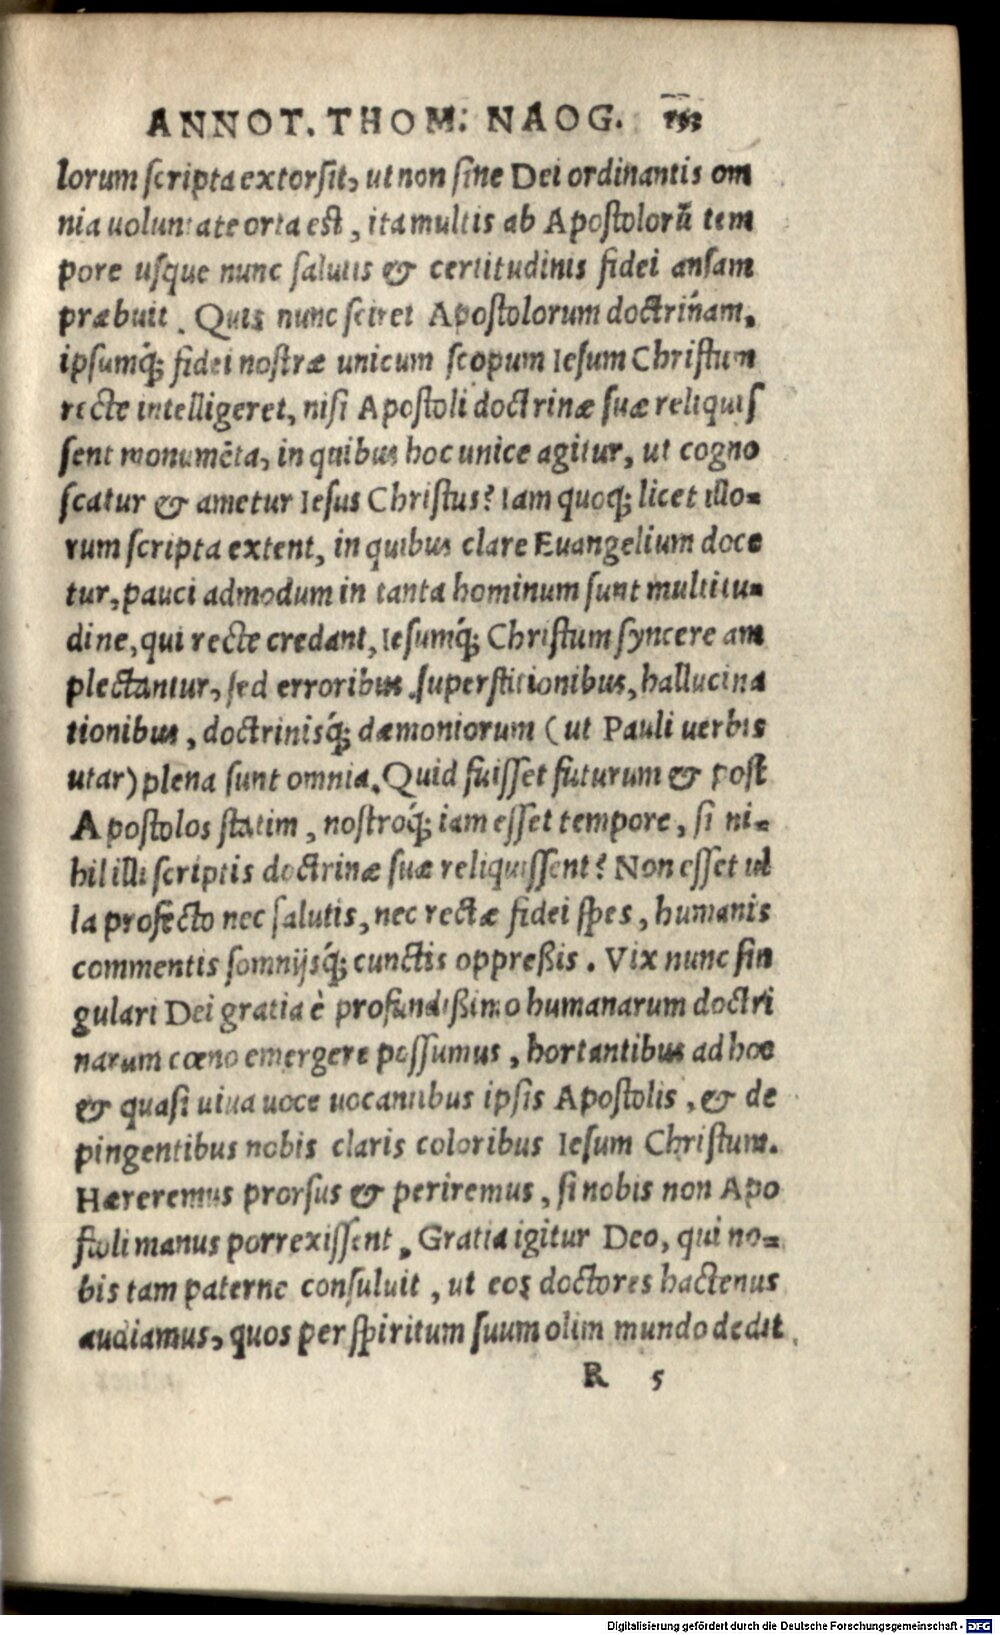 ANNOT. THOM. NAOG.
lorum scripta extorsit, ut non sine Dei ordinantis om
nia uoluntate orta est, ita multis ab Apostolorũ tem
pore usque nunc salutis & certitudinis fidei ansam
præbuit. Quis nunc sciret Apostolorum doctrinam,
ipsumq́; fidei nostræ unicum scopum Iesum Christum
recte intelligeret, nisi Apostoli doctrinæ suæ reliquis
sent monumẽta, in quibus hoc unice agitur, ut cogno
scatur & ametur Iesus Christus? Iam quoq; licet illo-
rum scripta extent, in quibus clare Euangelium doce
tur, pauci admodum in tanta hominum sunt multitu-
dine, qui recte credant, Iesumq́; Christum syncere am
plectantur, sed erroribus superstitionibus, hallucina
tionibus, doctrinisq́; dæmoniorum (ut Pauli uerbis
utar) plena sunt omnia. Quid fuisset futurum & post
Apostolos statim, nostroq́; iam esset tempore, si ni-
hil illi scriptis doctrinæ suæ reliquissent? Non esset ul
la profecto nec salutis, nec rectæ fidei spes, humanis
commentis somnijsq́; cunctis oppreßis. Vix nunc sin
gulari Dei gratia è profundißimo humanarum doctri
narum cœno emergere possumus, hortantibus ad hoc
& quasi uiua uoce uocantibus ipsis Apostolis, & de
pingentibus nobis claris coloribus Iesum Christum.
Hæreremus prorsus & periremus, si nobis non Apo
stoli manus porrexissent. Gratia igitur Deo, qui no-
bis tam paterne consuluit, ut eos doctores hactenus
audiamus, quos per spiritum suum olim mundo dedit.
R 5
Digitalisierung gefördert durch die Deutsche Forschungsgemeinschaft - DFG